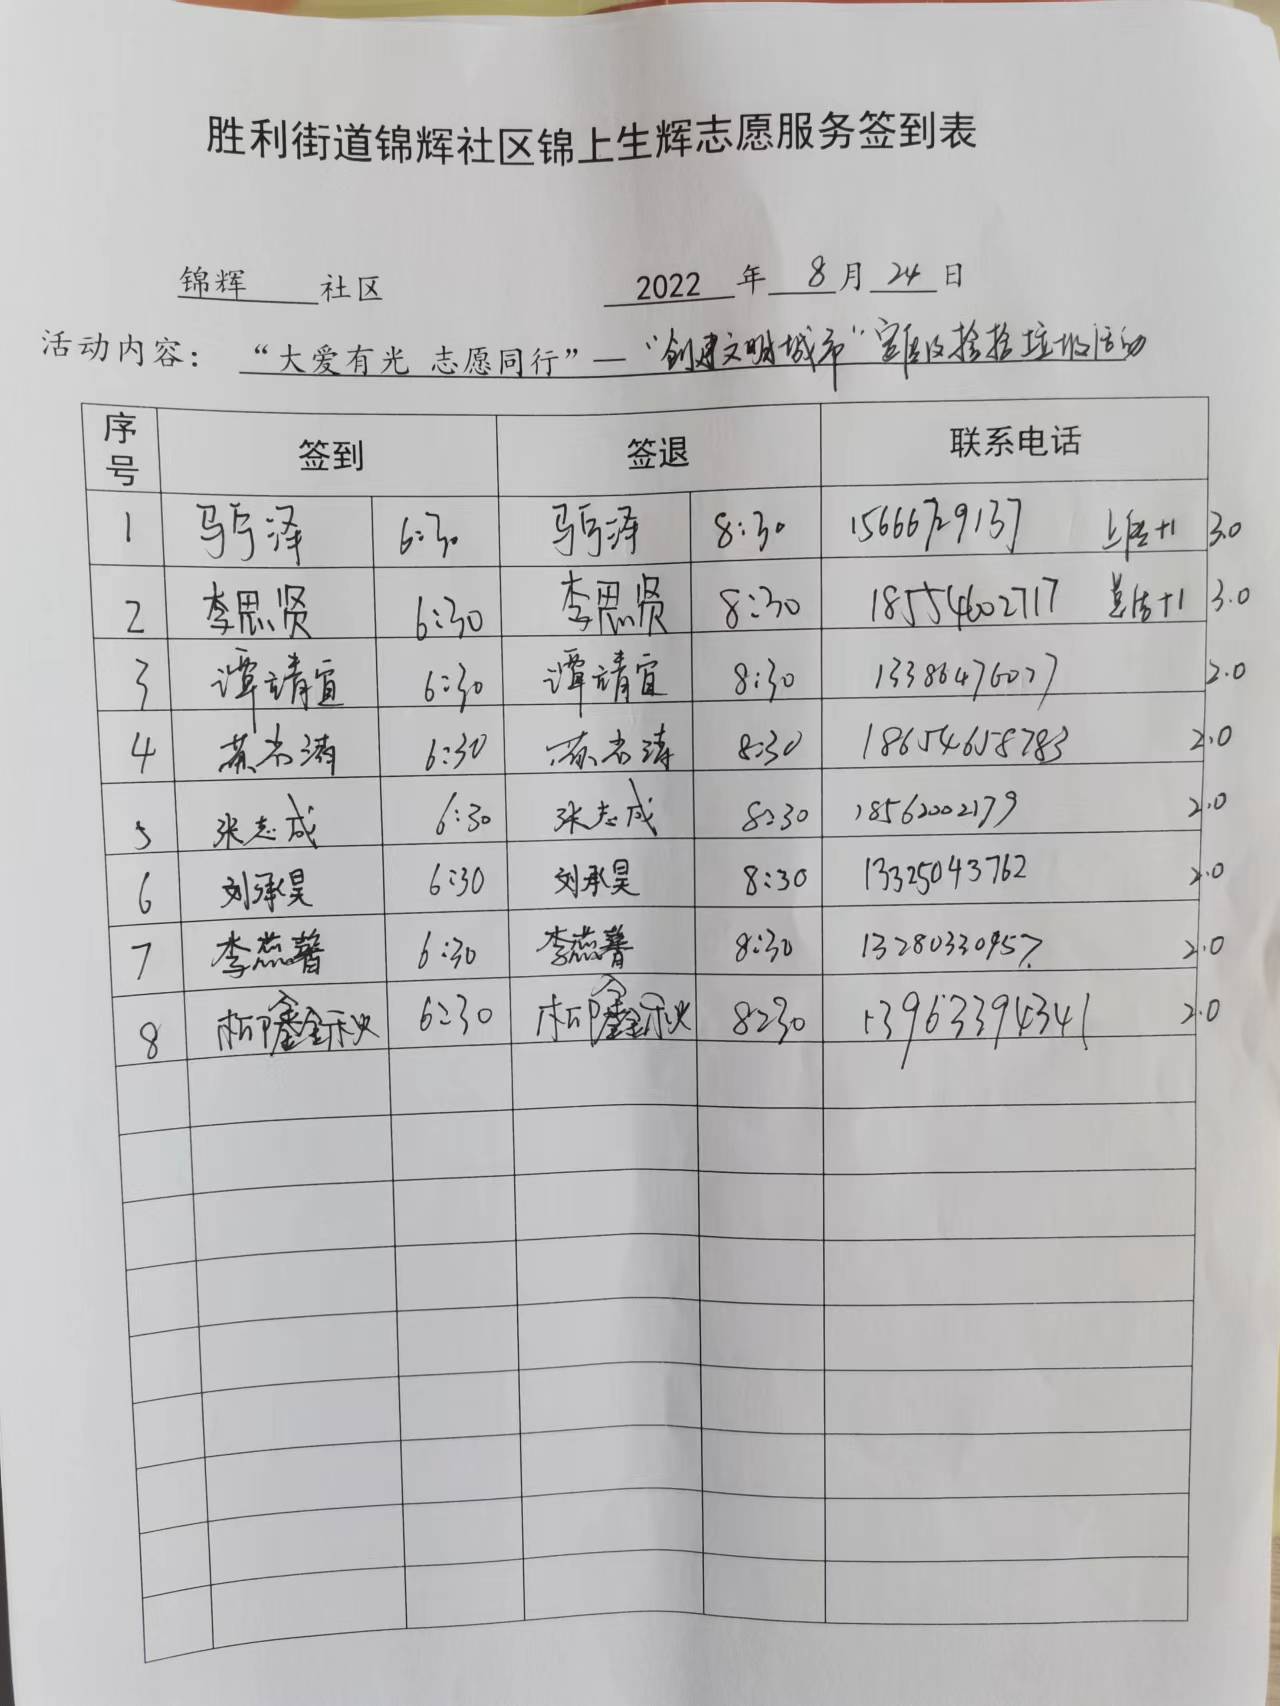 胜利街道锦辉社区锦上生辉志愿服务签到表
锦辉 社区 2022 年 8 月 24 日
活动内容： “大爱有光 志愿同行”—“创建文明城市”宣传及捡拾垃圾活动
序号 签到 签退 联系电话
1 泽 6:30 泽 8:30 15666729137 +1 3.0
2 李思贤 6:30 李思贤 8:30 18554602717 总结+1 3.0
3 谭靖宜 6:30 谭靖宜 8:30 13386476027 2.0
4 6:30 8:30 18654658783 2.0
5 张志成 6:30 张志成 8:30 18562002179 2.0
6 刘承昊 6:30 刘承昊 8:30 13325043762 2.0
7 李燕馨 6:30 李燕馨 8:30 13280330957 2.0
8 柳鑫秋 6:30 柳鑫秋 8:30 13963394341 2.0